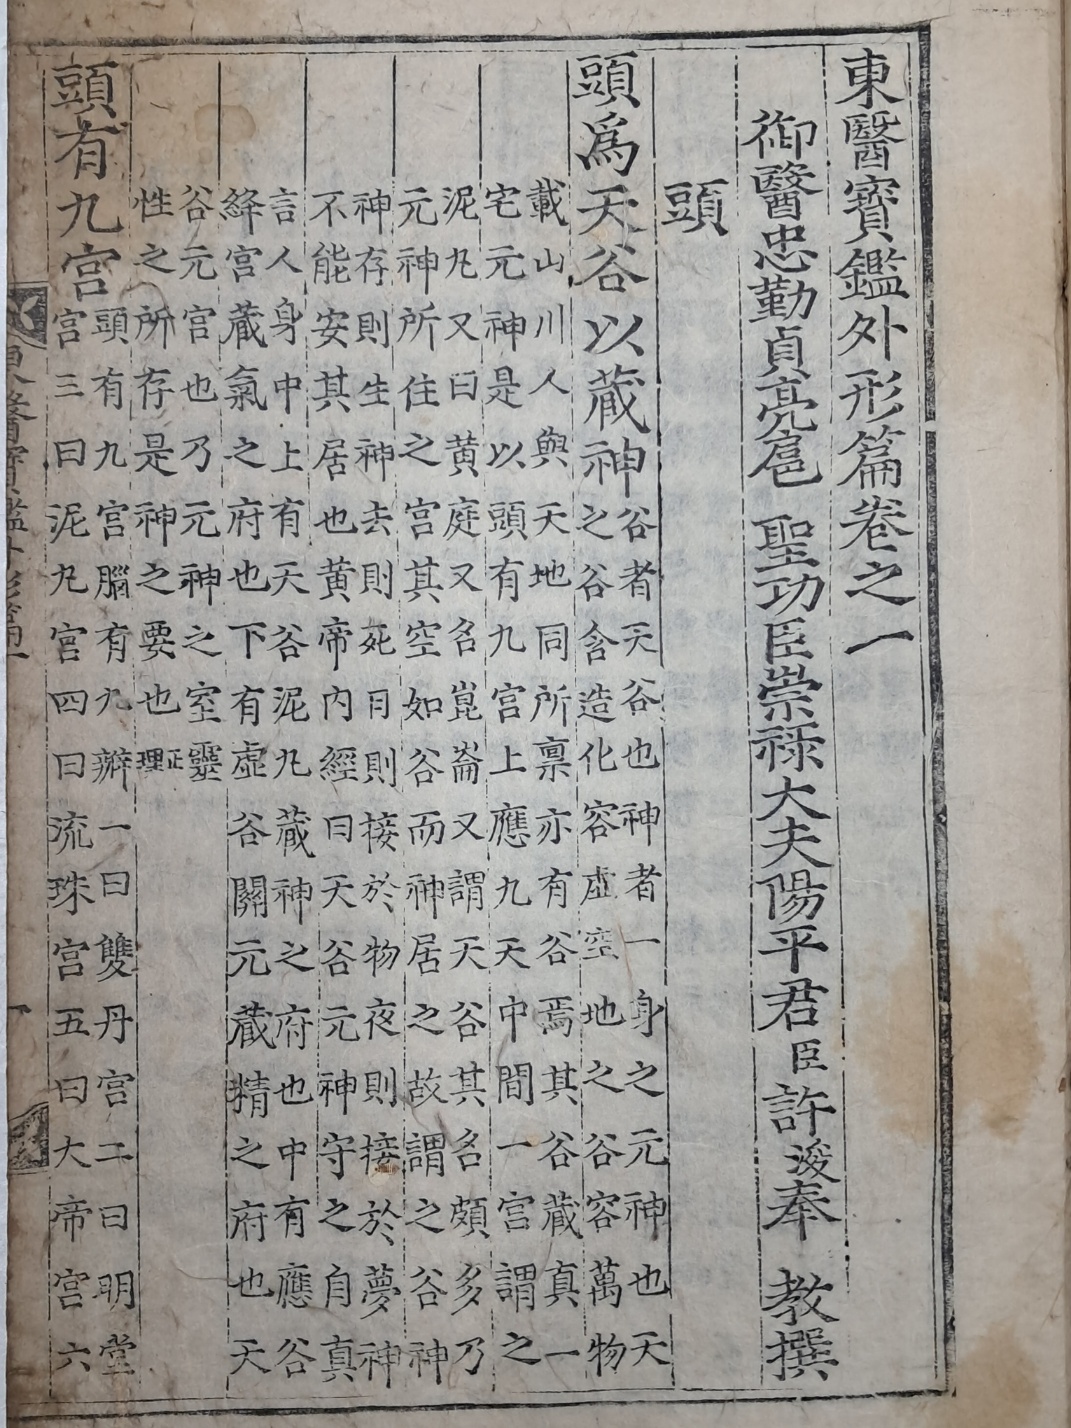 東醫寶鑑外形篇卷之一
御醫忠勤貞亮扈 聖功臣崇祿大夫陽平君臣許浚奉 教撰
頭
頭爲天谷以藏神 谷者天谷也神者一身之元神也天
之谷含造化容虛空地之谷容萬物
載山川人與天地同所稟亦有谷焉其谷藏真一
宅元神是以頭有九宮上應九天中間一宮謂之
泥丸又曰黃庭又名崑崙又謂天谷其名頗多乃
元神所住之宮其空如谷而神居之故謂之谷神
神存則生神去則死日則接於物夜則接於夢神
不能安其居也黃帝內經曰天谷元神守之自真
言人身中上有天谷泥丸藏神之府也中有應谷
絳宮藏氣之府也下有虛谷關元藏精之府也天
谷元宮也乃元神之室靈
性之所存是神之要也 正理
頭有九宮 頭有九宮腦有九瓣一曰雙丹宮二曰明堂
宮三曰泥丸宮四曰流珠宮五曰大帝宮六